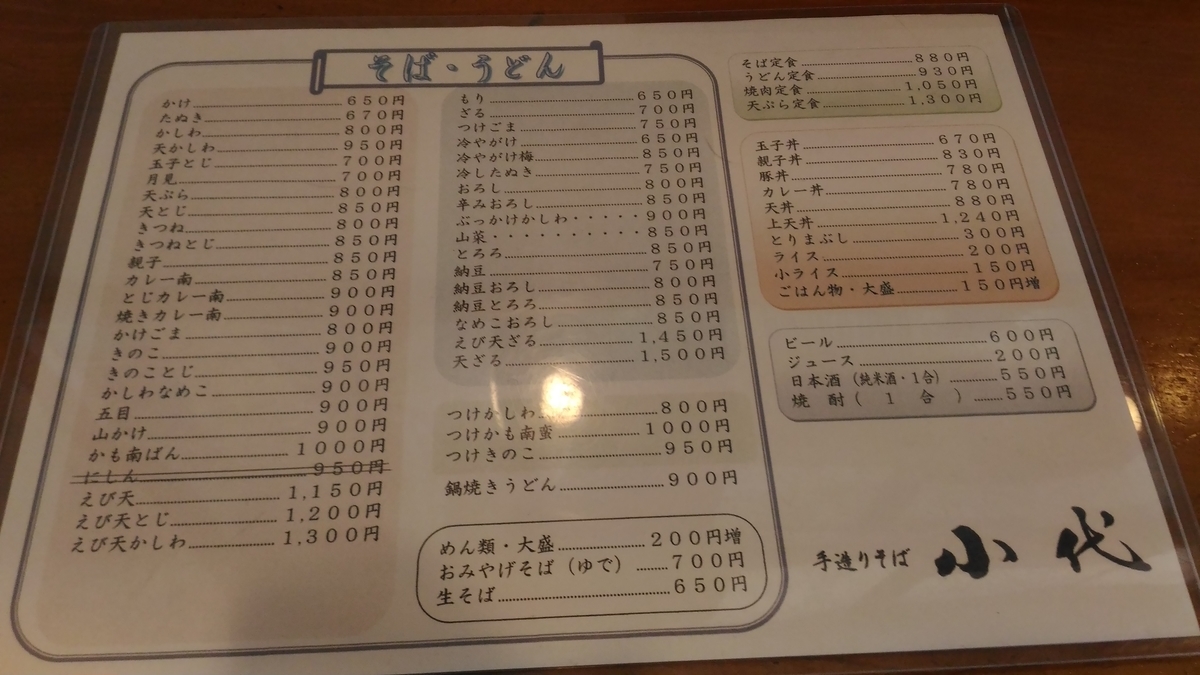 そば・うどん
かけ 650円
たぬき 670円
かしわ 800円
天かしわ 950円
玉子とじ 700円
月見 700円
天ぷら 800円
天とじ 850円
きつね 800円
きつねとじ 850円
親子 850円
カレー南 850円
とじカレー南 900円
焼きカレー南 900円
かけごま 800円
きのこ 900円
きのことじ 950円
かしわなめこ 900円
五目 900円
山かけ 900円
かも南ばん 1000円
にしん 950円
えび天 1,150円
えび天とじ 1,200円
えび天かしわ 1,300円
もり 650円
ざる 700円
つけごま 750円
冷やがけ 650円
冷やがけ梅 850円
冷したぬき 750円
おろし 800円
辛みおろし 850円
ぶっかけかしわ・・・・・900円
山菜・・・・・・・・・・850円
とろろ 850円
納豆 750円
納豆おろし 800円
納豆とろろ 850円
なめこおろし 850円
えび天ざる 1,450円
天ざる 1,500円
つけかしわ 800円
つけかも南蛮 1000円
つけきのこ 950円
鍋焼きうどん 900円
めん類・大盛 200円増
おみやげそば(ゆで) 700円
生そば 650円
そば定食 880円
うどん定食 930円
焼肉定食 1,050円
天ぷら定食 1,300円
玉子丼 670円
親子丼 830円
豚丼 780円
カレー丼 780円
天丼 880円
上天丼 1,240円
とりまぶし 300円
ライス 200円
小ライス 150円
ごはん物・大盛 150円増
ビール 600円
ジュース 200円
日本酒(純米酒・1合) 550円
焼酎(1合) 550円
手造りそば 小代